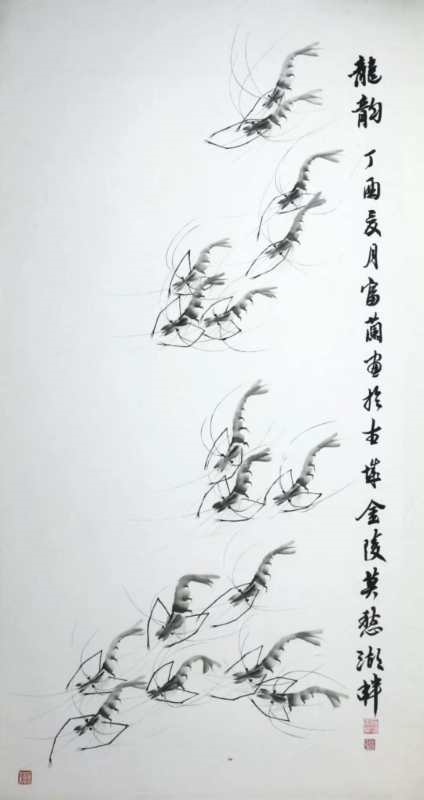 龍韵 丁酉亥月富蘭画於古城金陵莫愁湖畔